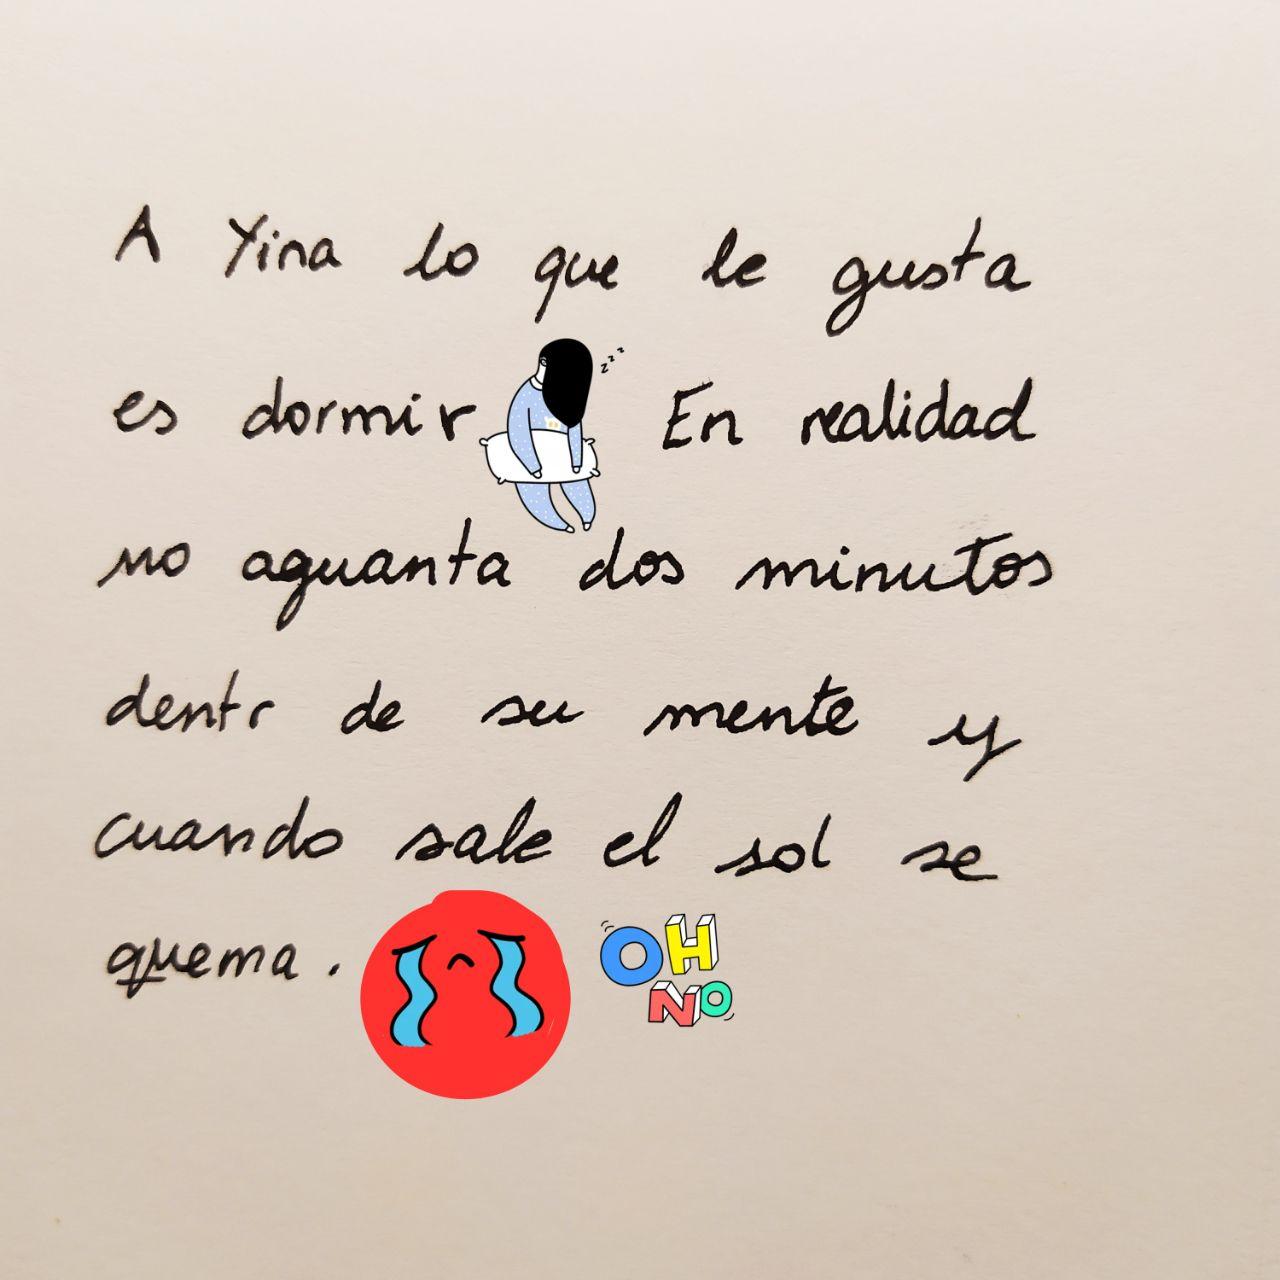 A Yina lo que le gusta
zzz
es dormir En realidad
no aguanta dos minutos
dentr de su mente y
cuando sale el sol se
quema.
OH
NO